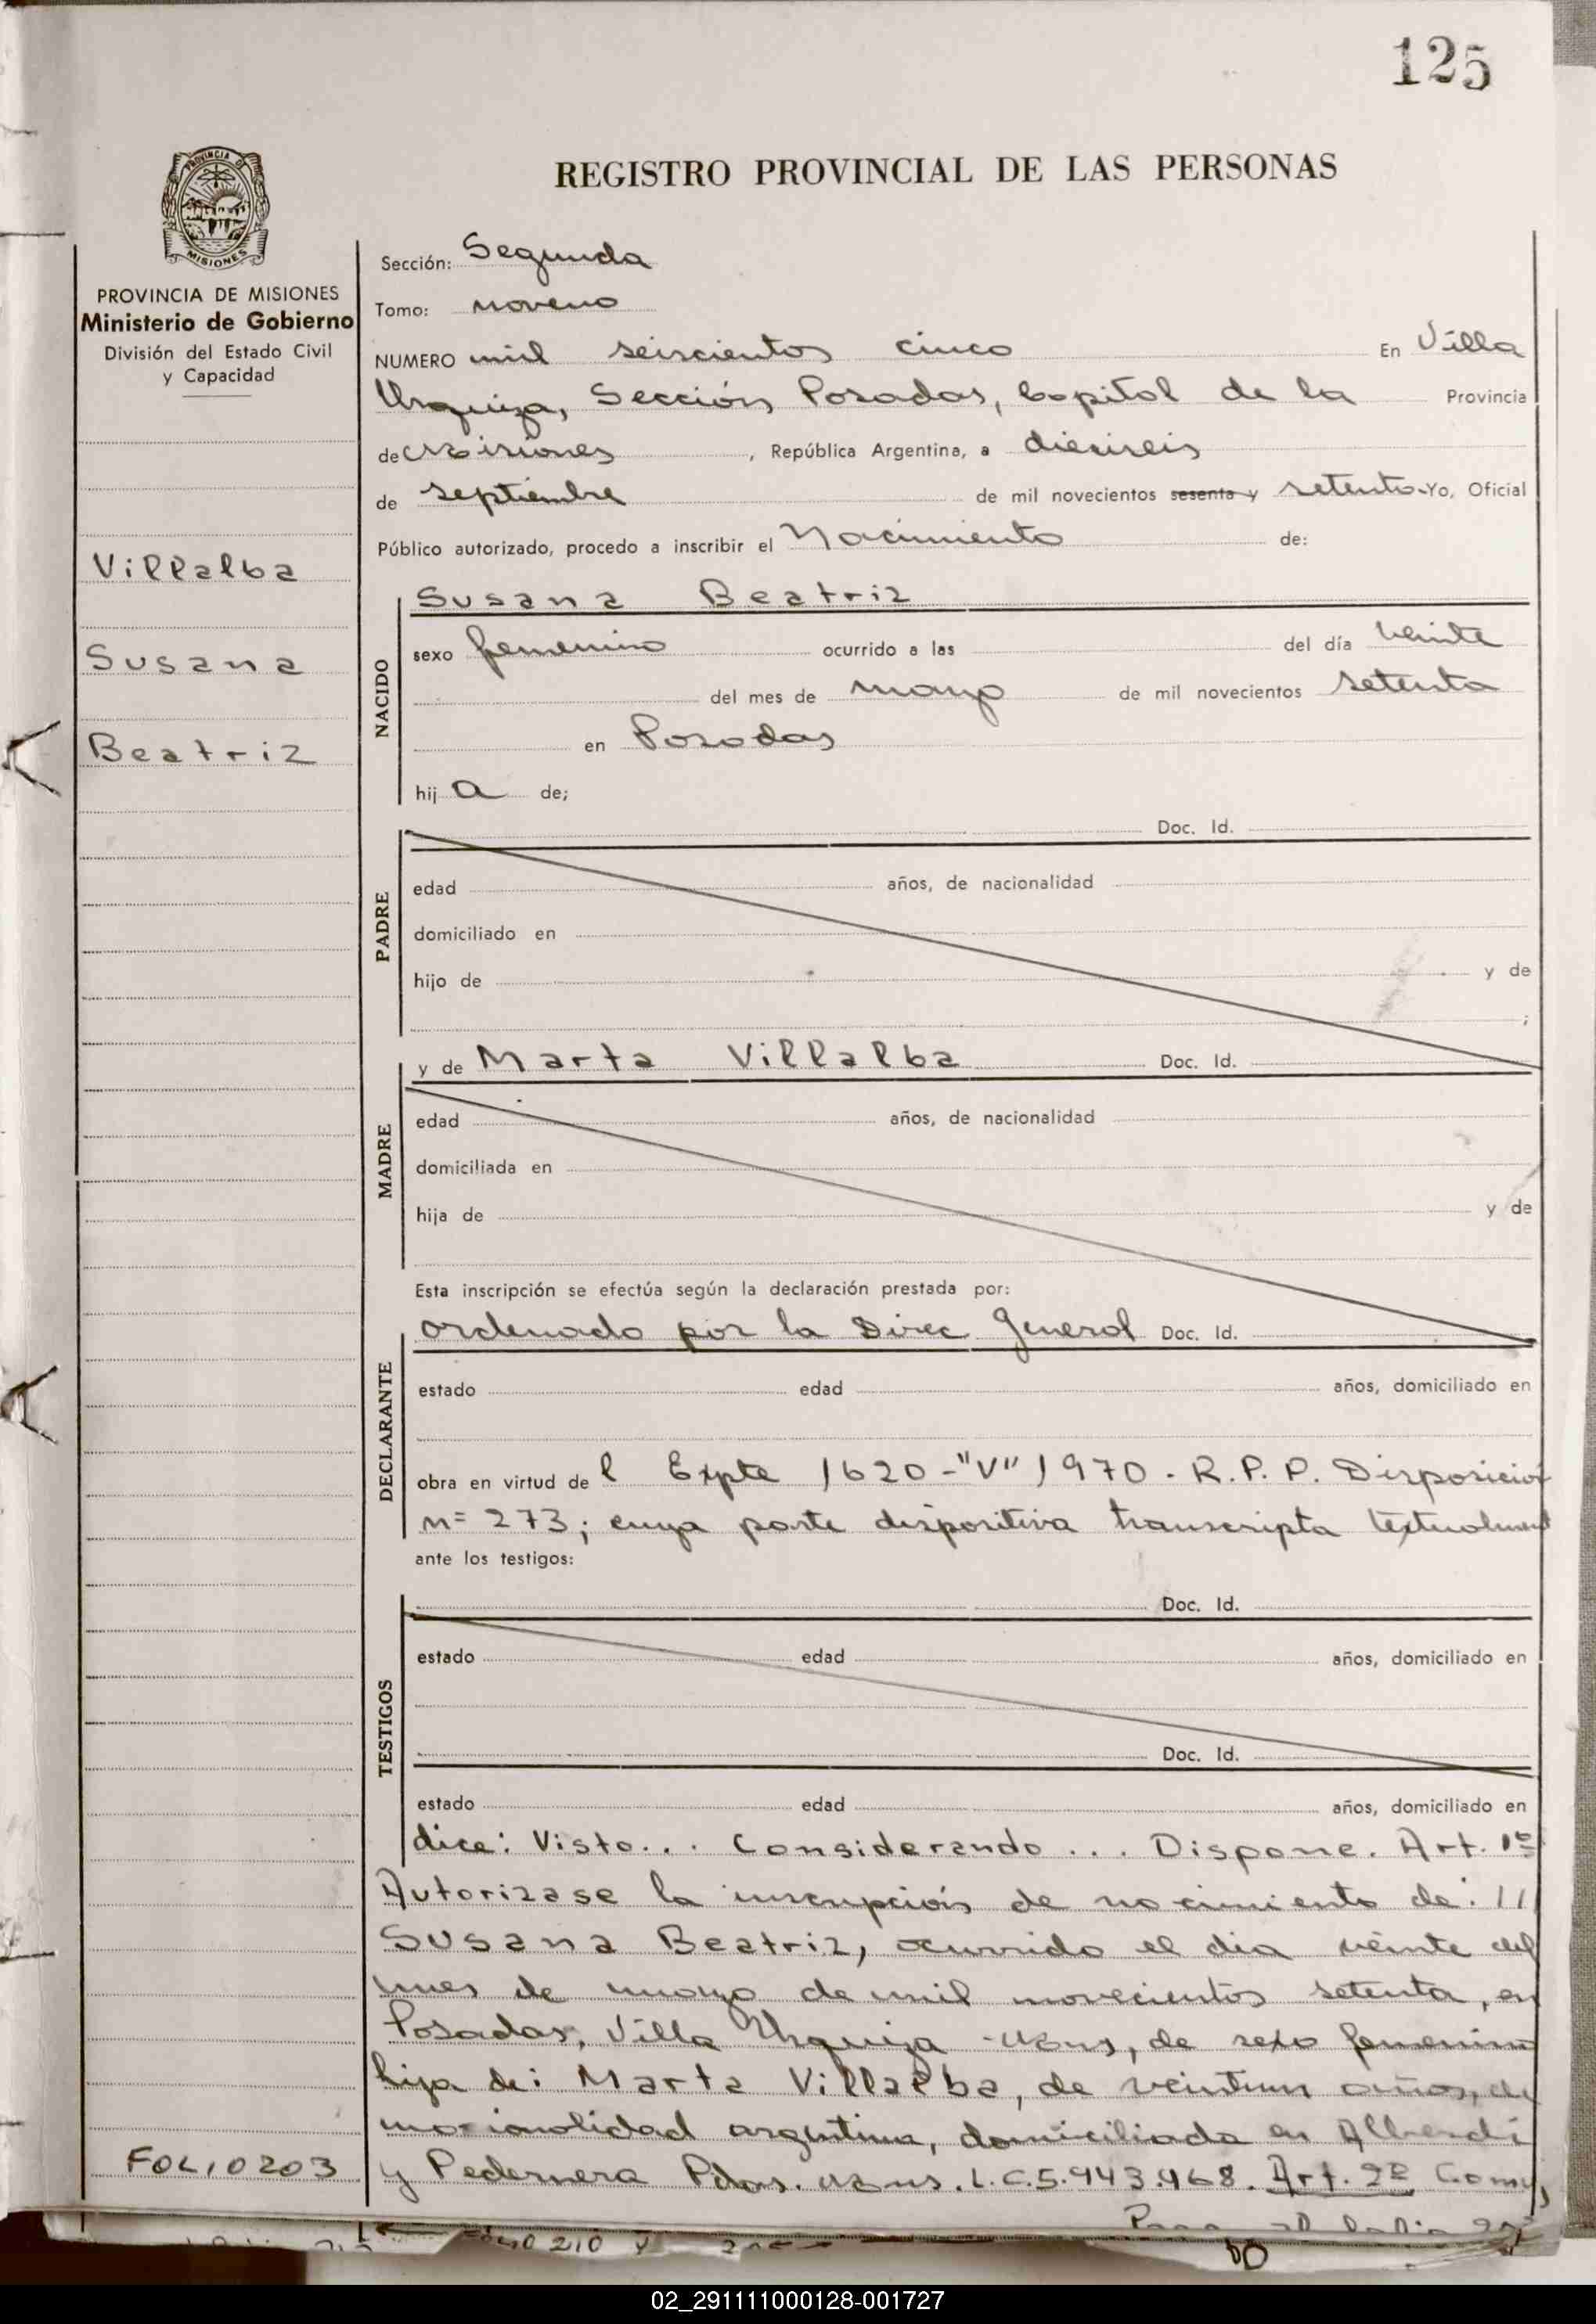 125
REGISTRO PROVINCIAL DE LAS PERSONAS
PROVINCIA DE MISIONES
MISIONES
PROVINCIA DE MISIONES
Ministerio de Gobierno
División del Estado Civil
y Capacidad
Villalba
Susana
Beatriz
FOLIO 203
Sección: Segunda
Tomo: noveno
NUMERO mil seiscientos cinco En Villa
Urquiza, Sección Posadas, Capital de la Provincia
de Misiones, República Argentina, a dieciseis
de septiembre de mil novecientos sesenta y setenta. Yo, Oficial
Público autorizado, procedo a inscribir el Nacimiento de:
NACIDO
Susana Beatriz
sexo femenino ocurrido a las del día veinte
del mes de mayo de mil novecientos setenta
en Posadas
hij a de;
PADRE
Doc. Id.
edad años, de nacionalidad
domiciliado en
hijo de y de
;
MADRE
y de Marta Villalba Doc. Id.
edad años, de nacionalidad
domiciliada en
hija de y de
Esta inscripción se efectúa según la declaración prestada por:
DECLARANTE
ordenado por la Direc. General Doc. Id.
estado edad años, domiciliado en
obra en virtud de l Expte 1620-"V" 1970. R.P.P. Disposición
n= 273; cuya parte dispositiva transcripta textualment
ante los testigos:
TESTIGOS
Doc. Id.
estado edad años, domiciliado en
Doc. Id.
estado edad años, domiciliado en
dice: Visto... Considerando... Dispone. Art. 1º
Autorizase la inscripción de nacimiento de: //
Susana Beatriz, ocurrido el dia veinte del
mes de mayo de mil novecientos setenta, en
Posadas, Villa Urquiza - Mnes, de sexo femenino
hija de: Marta Villalba, de veintiun años, de
nacionalidad argentina, domiciliada en Alberdi
y Pedernera Pdas. Mnes. L.C. 5.943.468. Art. 2º Com
Pasa al folio
210 y
02_291111000128-001727